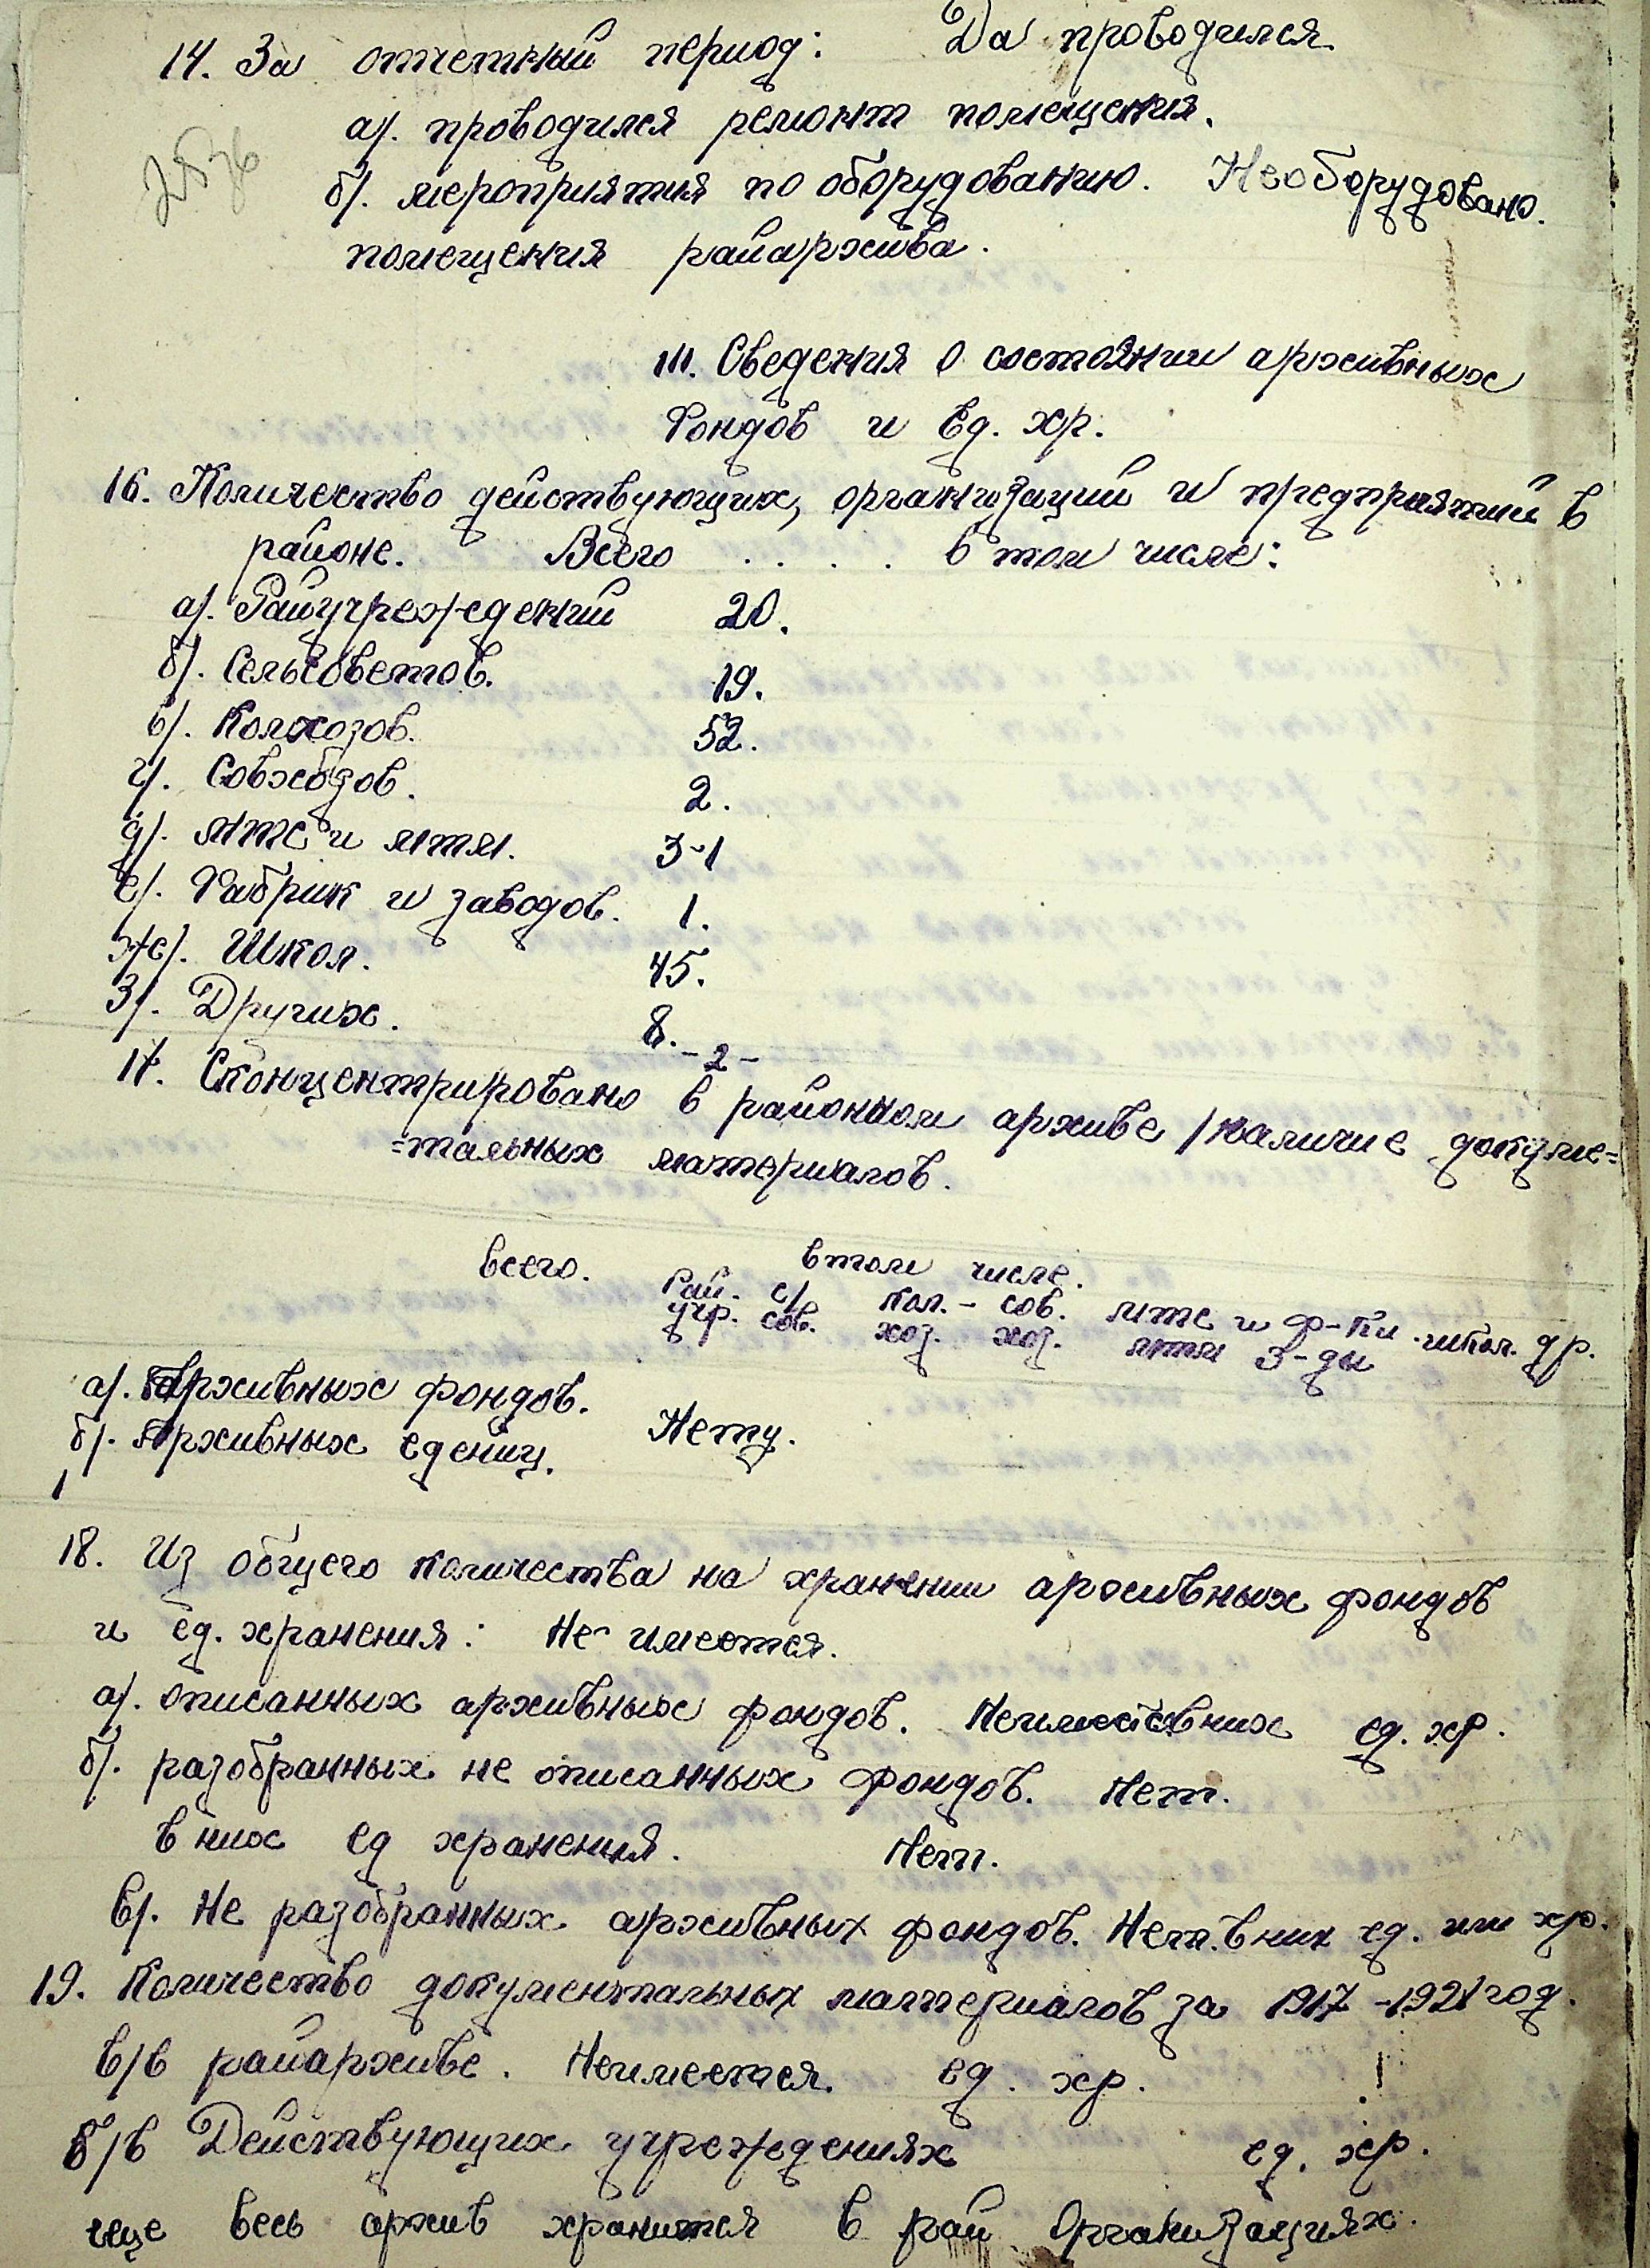 14. За отчетный период: Да проводился.
а/. проводился ремонт помещения.
б/. мероприятия по оборудованию. Необорудовано.
помещения райархива.
III. Сведения о состоянии архивных
Фондов и Ед. хр.
16. Количество действующих, организаций и предприятий в
районе. Всего . . . . в том числе:
а/. Райучреждений 20.
б/. Сельсоветов. 19.
в/. Колхозов. 52.
г/. Совхозов. 2.
д/. мтс и мтм. 3-1
е/. Фабрик и заводов. 1.
ж/. Школ. 45.
з/. Других. 8.
-2-
17. Сконцентрировано в районном архиве /наличие докуме=
=тальных материалов.
всего. в том числе.
Рай. с/ кол.- сов. мтс и ф-ки школ. др.
учр. сов. хоз. хоз. мтм з-ды
а/. Архивных фондов.
б/. Архивных едениц. Нету.
18. Из общего количества на хранении архивных фондов
и ед. хранения: Не имеется.
а/. описанных архивных фондов. ед. хр.
б/. разобранных не описанных фондов. Нет.
в них ед хранения. Нет.
в/. Не разобранных архивных фондов. Нет. в них ед. хр.
19. Количество документальных материалов за 1917-1921 год.
в/в райархиве. Неимеется. ед. хр.
б/в Действующих учреждениях ед. хр.
еще весь архив хранится в рай Организациях.